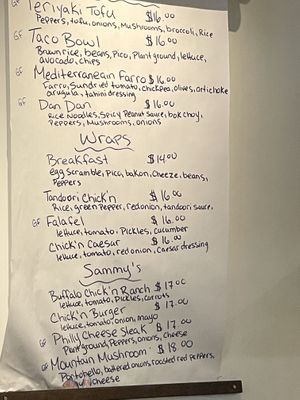 GF Teriyaki Tofu $16.00
Peppers, tofu, onions, Mushrooms, broccoli, Rice
GF Taco Bowl $16.00
Brown rice, beans, Pico, Plant ground, lettuce,
avocado, chips
GF Mediterranean Farro $16.00
Farro, Sundried tomato, chickpea, olives, artichoke
arugula, tahini dressing
GF Dan Dan $16.00
Rice Noodles, Spicy Peanut sauce, bok choy,
Peppers, Mushrooms, onions
Wraps
Breakfast $14.00
egg scramble, Pico, bakon, cheeze, beans,
Peppers
Tandoori Chick'n $16.00
Rice, green Pepper, red onion, tandoori sauce
GF Falafel $16.00
lettuce, tomato, Pickles, cucumber
Chick'n Caesar $16.00
lettuce, tomato, red onion, Caesar dressing
Sammy's
Buffalo Chick'n Ranch $17.00
lettuce, tomato, Pickles, carrots
Chick'n Burger $17.00
lettuce, tomato, onion, mayo
GF Philly Cheese Steak $17.00
Plant ground, Peppers, onions, cheese
GF Mountain Mushroom $18.00
Portobello, battered onions, roasted red Peppers,
cheese